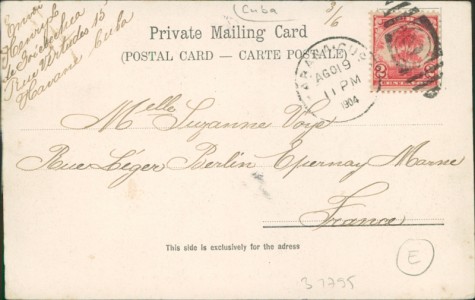 Cuba
3/6
Envoi
Rue Virtudes 15
Havane Cuba
Private Mailing Card
(POSTAL CARD — CARTE POSTALE)
AGO 19
11 PM
1904
2 CENTAVOS 2
Melle Suzanne
Rue Léger Berlin Epernay Marne
France
This side is exclusively for the adress
E
3 1795